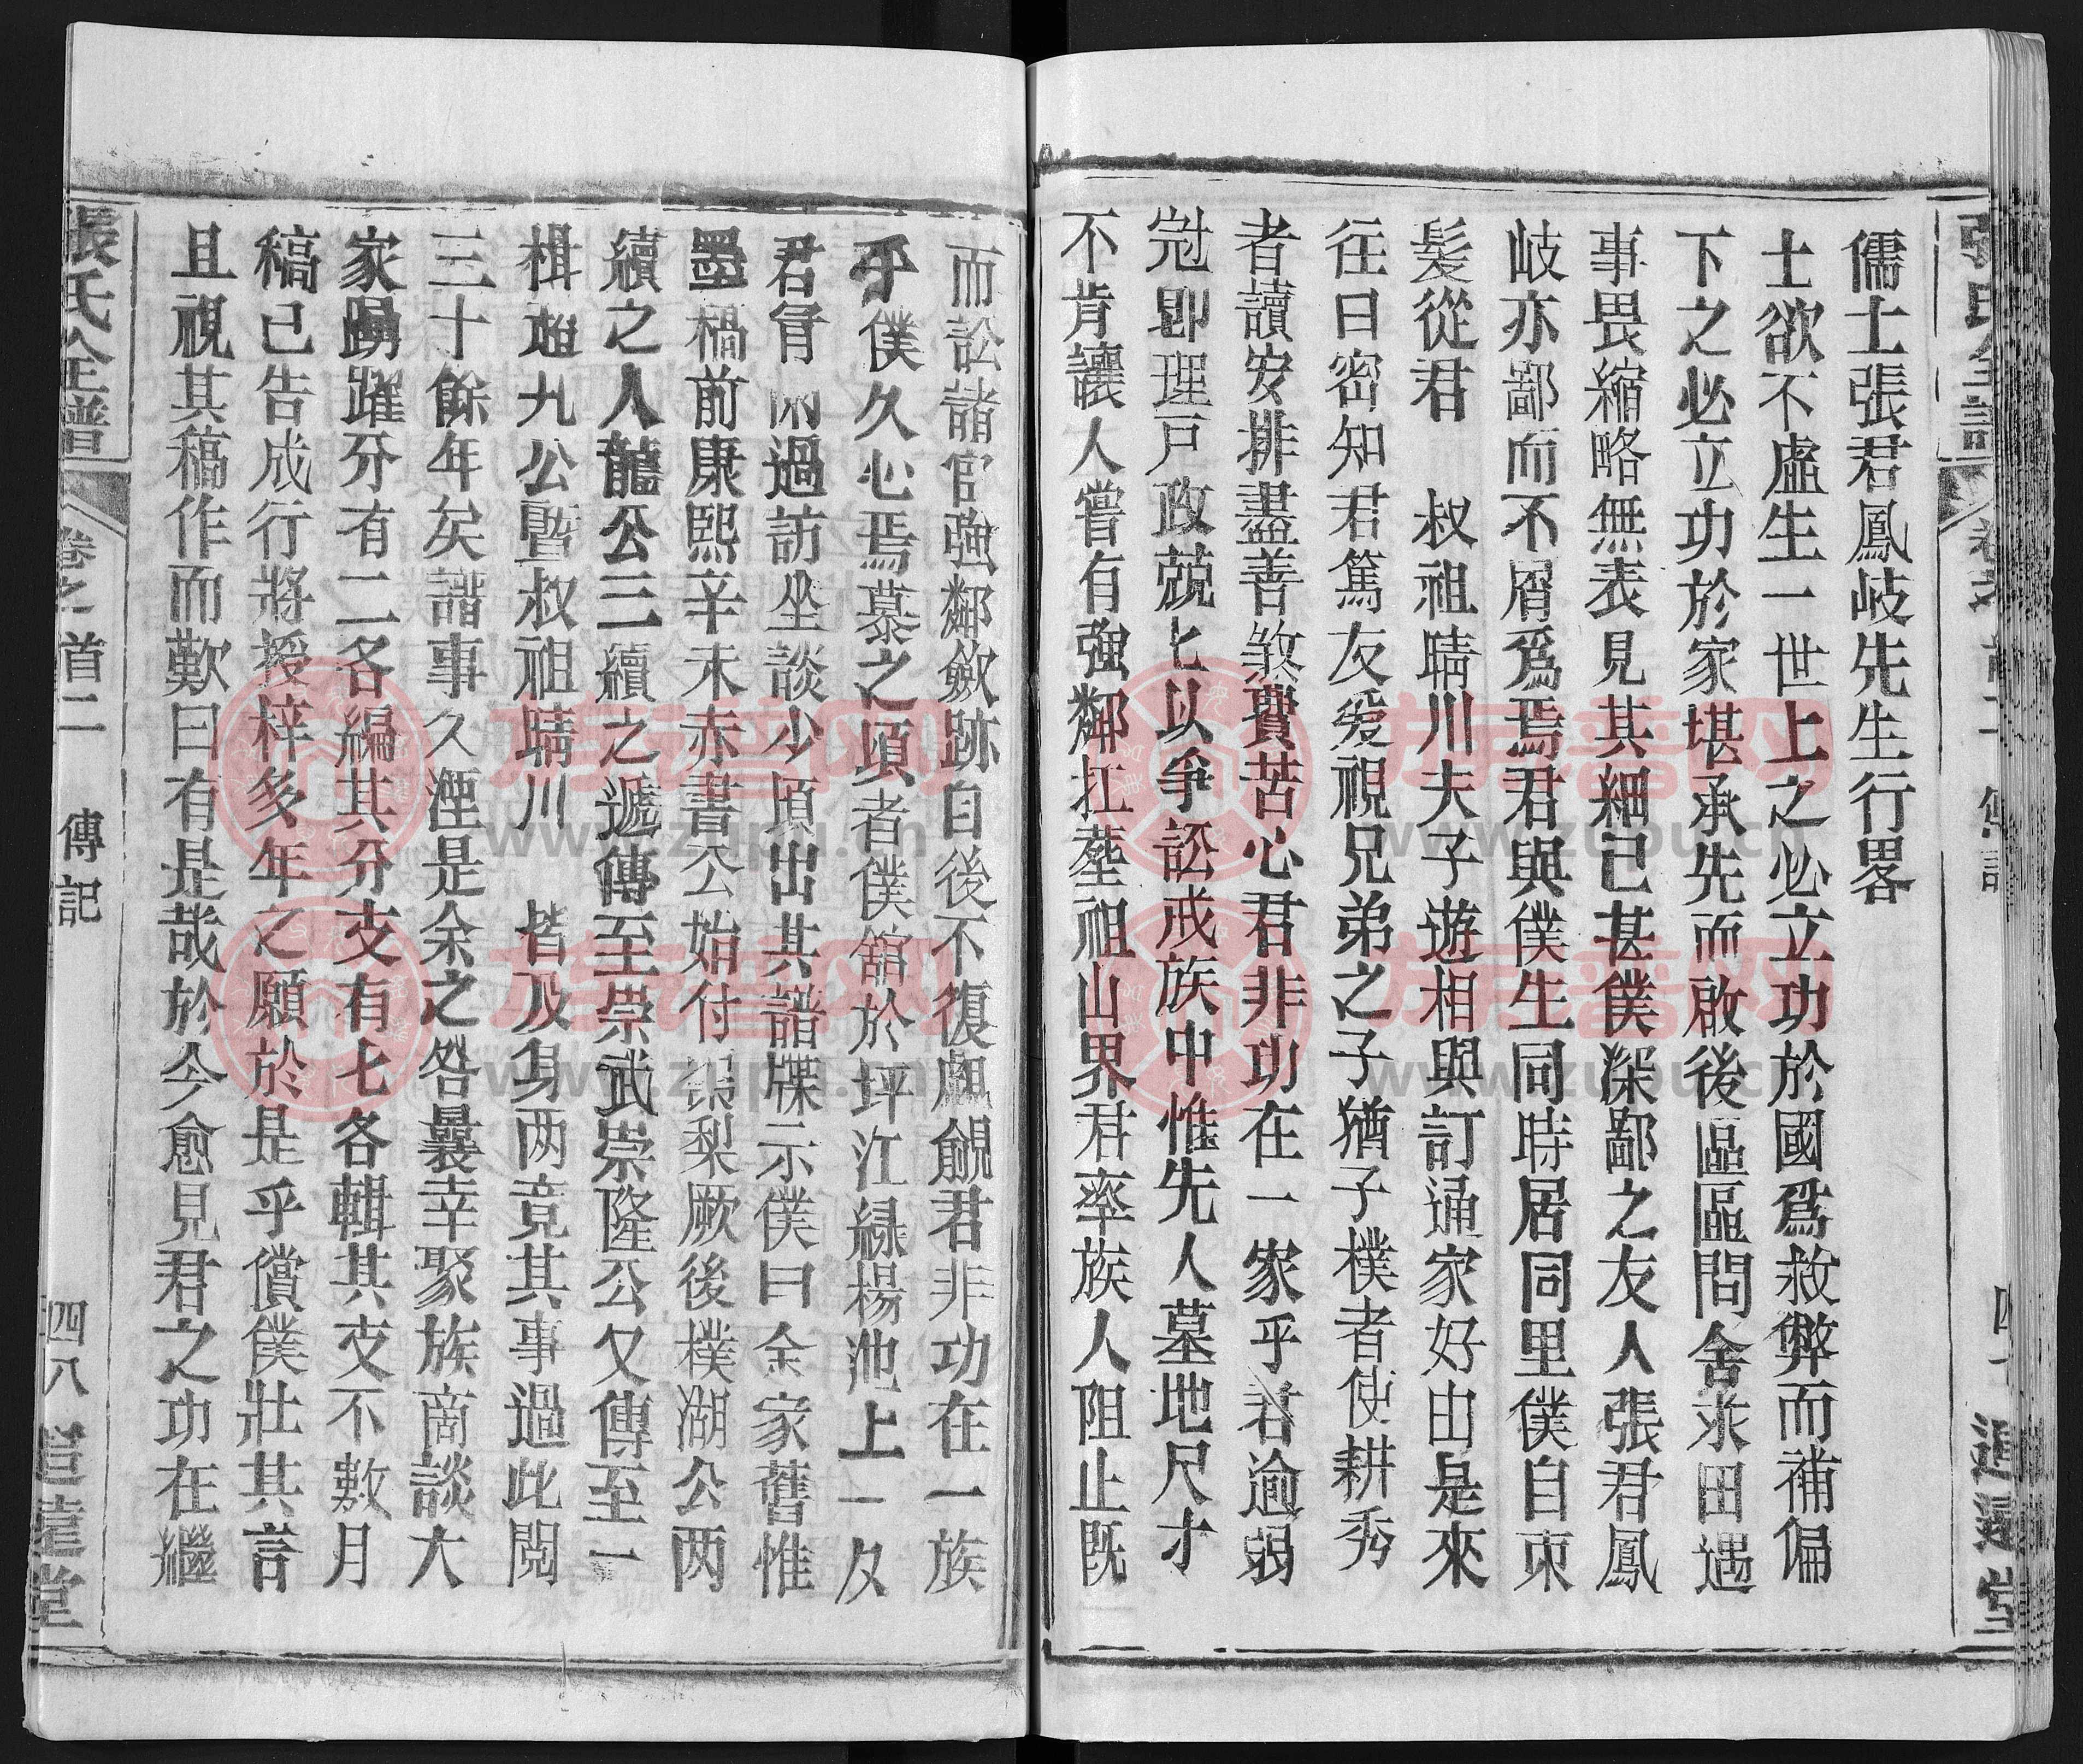 儒士張君鳳岐先生行畧
士欲不虛生一世上之必立功於國爲救弊而補偏
下之必立功於家堪承先而啟後區區問舍求田遇
事畏縮略無表見其細已甚僕深鄙之友人張君鳳
岐亦鄙而不屑爲焉君與僕生同時居同里僕自束
髪從君 叔祖晴川夫子遊相與訂通家好由是來
往日密知君篤友爱視兄弟之子猶子樸者使耕秀
者讀安排盡善煞費苦心君非功在一家乎君逾弱
冠即理戸政兢兢以爭訟戒族中惟先人墓地尺寸
不肯讓人嘗有強鄰扛塟祖山界君率族人阻止既
而訟諸官強鄰斂跡自後不復覷覦君非功在一族
乎僕久心焉慕之頃者僕舘於坪江緑楊池上一夕
君有閑過訪坐談少頃出其譜牒示僕曰余家舊惟
墨稿前康熙辛未赤書公始付棗梨厥後樸湖公两
續之人龍公三續之遞傳至崇武崇隆公又傳至一
楫超九公曁叔祖晴川 皆及身两竟其事過此閲
三十餘年矣譜事久湮是余之咎曩幸聚族商談大
家踴躍分有二各編其分支有七各輯其支不數月
稿已告成行將授梓多年之願於是乎償僕壯其言
且視其稿作而歎曰有是哉於今愈見君之功在繼
張氏全譜 卷之首二 傳記 四八
族谱网
www.zupu.cn